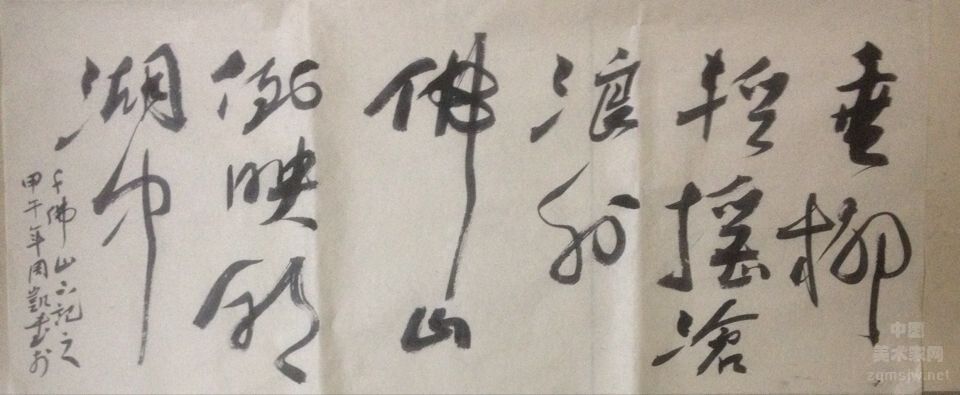 垂柳
轻摇沧
浪外
佛山
倒映明
湖中
千佛山记之
甲午年周凯书
中国
美术家网
zgmsjw.net